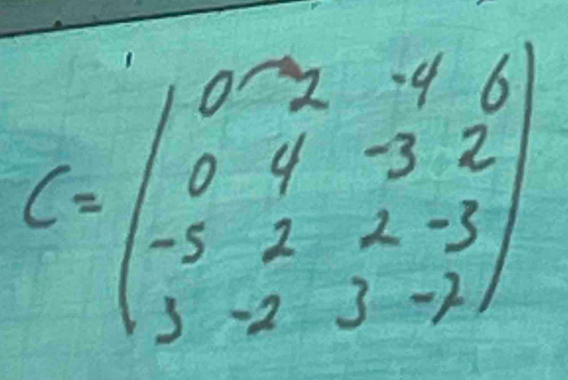 C = | 0 2 -4 6 |
| 0 4 -3 2 |
| -5 2 2 -3 |
| 3 -2 3 -7 |